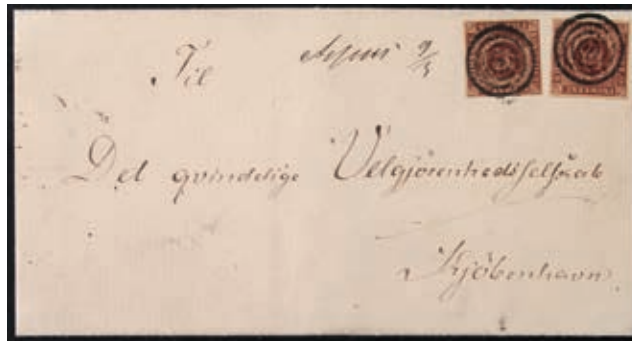 Til
9/3
Det qvindelige Velgjörenhedsselskab
Kjöbenhavn.